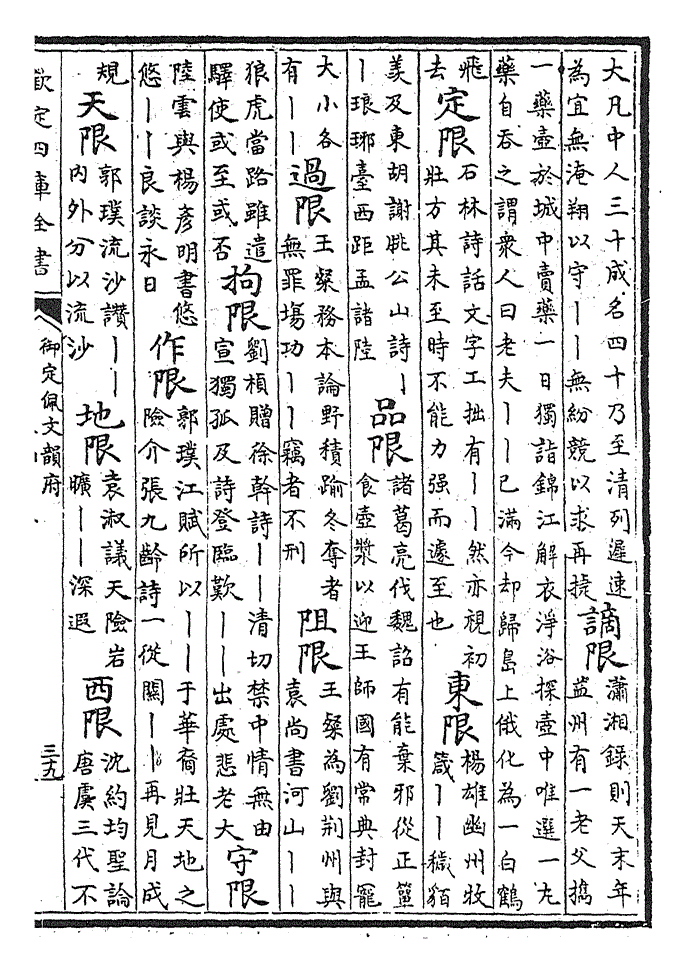 大凡中人三十成名四十乃至清列遲速
為宜無淹翔以守丨丨無紛競以求再捷
謫限
瀟湘錄則天末年
益州有一老父擕
一藥壺於城中賣藥一日獨詣錦江解衣淨浴探壺中唯選一丸
藥自吞之謂衆人曰老夫丨丨已滿今却歸島上俄化為一白鶴
飛
去
定限
石林詩話文字工拙有丨丨然亦視初
壯方其未至時不能力强而遽至也
東限
楊雄幽州牧
箴丨丨穢貊
羡及東胡謝朓公山詩丨
丨琅琊臺西距孟諸陸
品限
諸葛亮伐魏詔有能棄邪從正簞
食壺漿以迎王師國有常典封寵
大小各
有丨丨
過限
王粲務本論野積踰冬奪者
無罪塲功丨丨竊者不刑
阻限
王粲為劉荆州與
袁尚書河山丨丨
狼虎當路雖遣
驛使或至或否
拘限
劉楨贈徐幹詩丨丨清切禁中情無由
宣獨孤及詩登臨歎丨丨出處悲老大
守限
陸雲與楊彦明書悠
悠丨丨良談永日
作限
郭璞江賦所以丨丨于華裔壯天地之
險介張九齡詩一從關丨丨再見月成
規
天限
郭璞流沙讚丨丨
内外分以流沙
地限
袁淑議天險岩
曠丨丨深遐
西限
沈約均聖論
唐虞三代不
欽定四庫全書
御定佩文韻府
三九